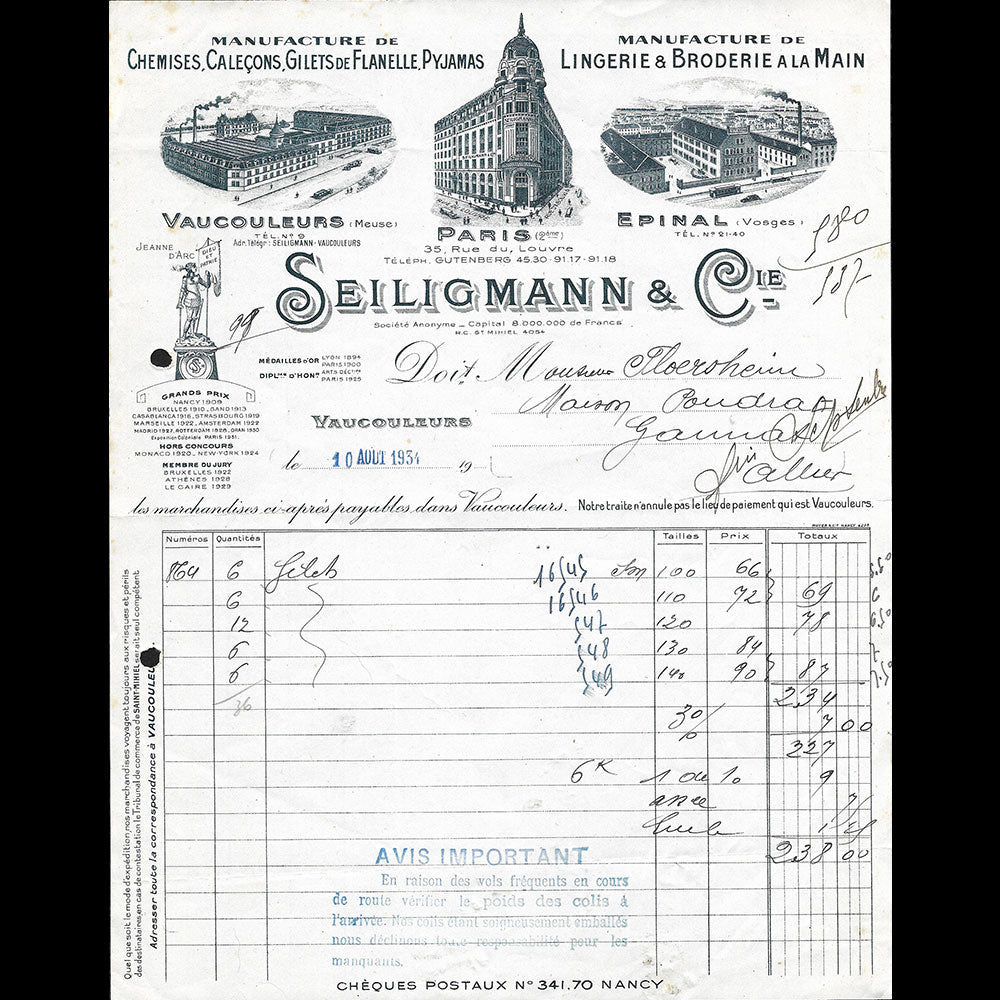 MANUFACTURE DE
CHEMISES, CALEÇONS, GILETS DE FLANELLE, PYJAMAS
MANUFACTURE DE
LINGERIE & BRODERIE A LA MAIN
VAUCOULEURS (Meuse)
TÉL. Nº 9
Adr. Télégr: SEILIGMANN-VAUCOULEURS
PARIS (2ème)
35, Rue du Louvre
TÉLÉPH. GUTENBERG 45.30-91.17-91.18
EPINAL (Vosges)
TÉL. Nº 21-40
580
587-
JEANNE
D'ARC
DIEU
ET
PATRIE
SEILIGMANN & CIE
Société Anonyme _ Capital 8.000.000 de Francs
R.C. ST MIHIEL 4054
99
MÉDAILLES D'OR LYON 1894
PARIS 1900
DIPLmes D'HONr ARTS DÉCtifs
PARIS 1925
GRANDS PRIX
NANCY 1909
BRUXELLES 1910, GAND 1913
CASABLANCA 1916, STRASBOURG 1919
MARSEILLE 1922, AMSTERDAM 1922
MADRID 1927, ROTTERDAM 1928, ORAN 1930
Exposition Coloniale PARIS 1931.
HORS CONCOURS
MONACO 1920, NEW-YORK 1924
MEMBRE DU JURY
BRUXELLES 1922
ATHÈNES 1928
LE CAIRE 1929
Doit Monsieur Floersheim
Maison Poudras
Gannat
fin
Allier
VAUCOULEURS
le 10 AOUT 1934 19
les marchandises ci-après payables dans Vaucouleurs. Notre traite n'annule pas le lieu de paiement qui est Vaucouleurs.
Numéros Quantités Tailles Prix Totaux
864 6 Gilets 16545 100 66 5.50
6 16546 110 72 69 6
12 547 120 78 6.50
6 548 130 84 7
6 549 140 90 87 7.50
36 234
3% 7 00
227
6 K 9
238 00
AVIS IMPORTANT
En raison des vols fréquents en cours
de route vérifier le poids des colis à
l'arrivée. Nos colis étant soigneusement emballés
nous déclinons toute responsabilité pour les
manquants.
CHÈQUES POSTAUX Nº 341.70 NANCY
Quel que soit le mode d'expédition, nos marchandises voyagent toujours aux risques et périls
des destinataires, en cas de contestation le Tribunal de commerce de SAINT-MIHIEL serait seul compétent
Adresser toute la correspondance à VAUCOULEURS.